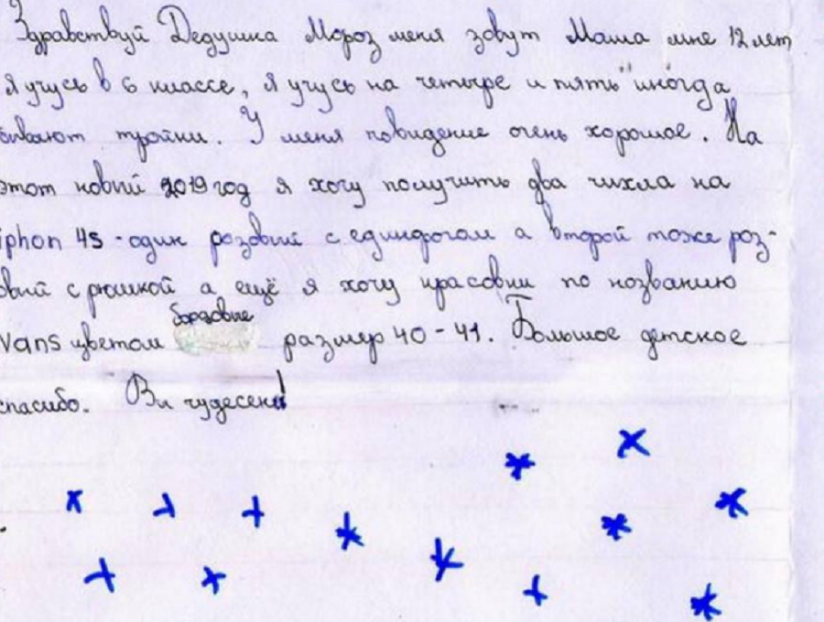 Здравствуй Дедушка Мороз меня зовут Маша мне 12 лет
я учусь в 6 классе, я учусь на четыре и пять иногда
бывают тройки. У меня повидение очень хорошое. На
этот новий 2019 год я хочу получить два чихла на
iphon 4s - один розовий с единорогом а второй тоже роз-
овий с рюшкой а ещё я хочу красовки по названию
Vans цветом бордовые размер 40-41. Большое детское
спасибо. Ви чудесен!